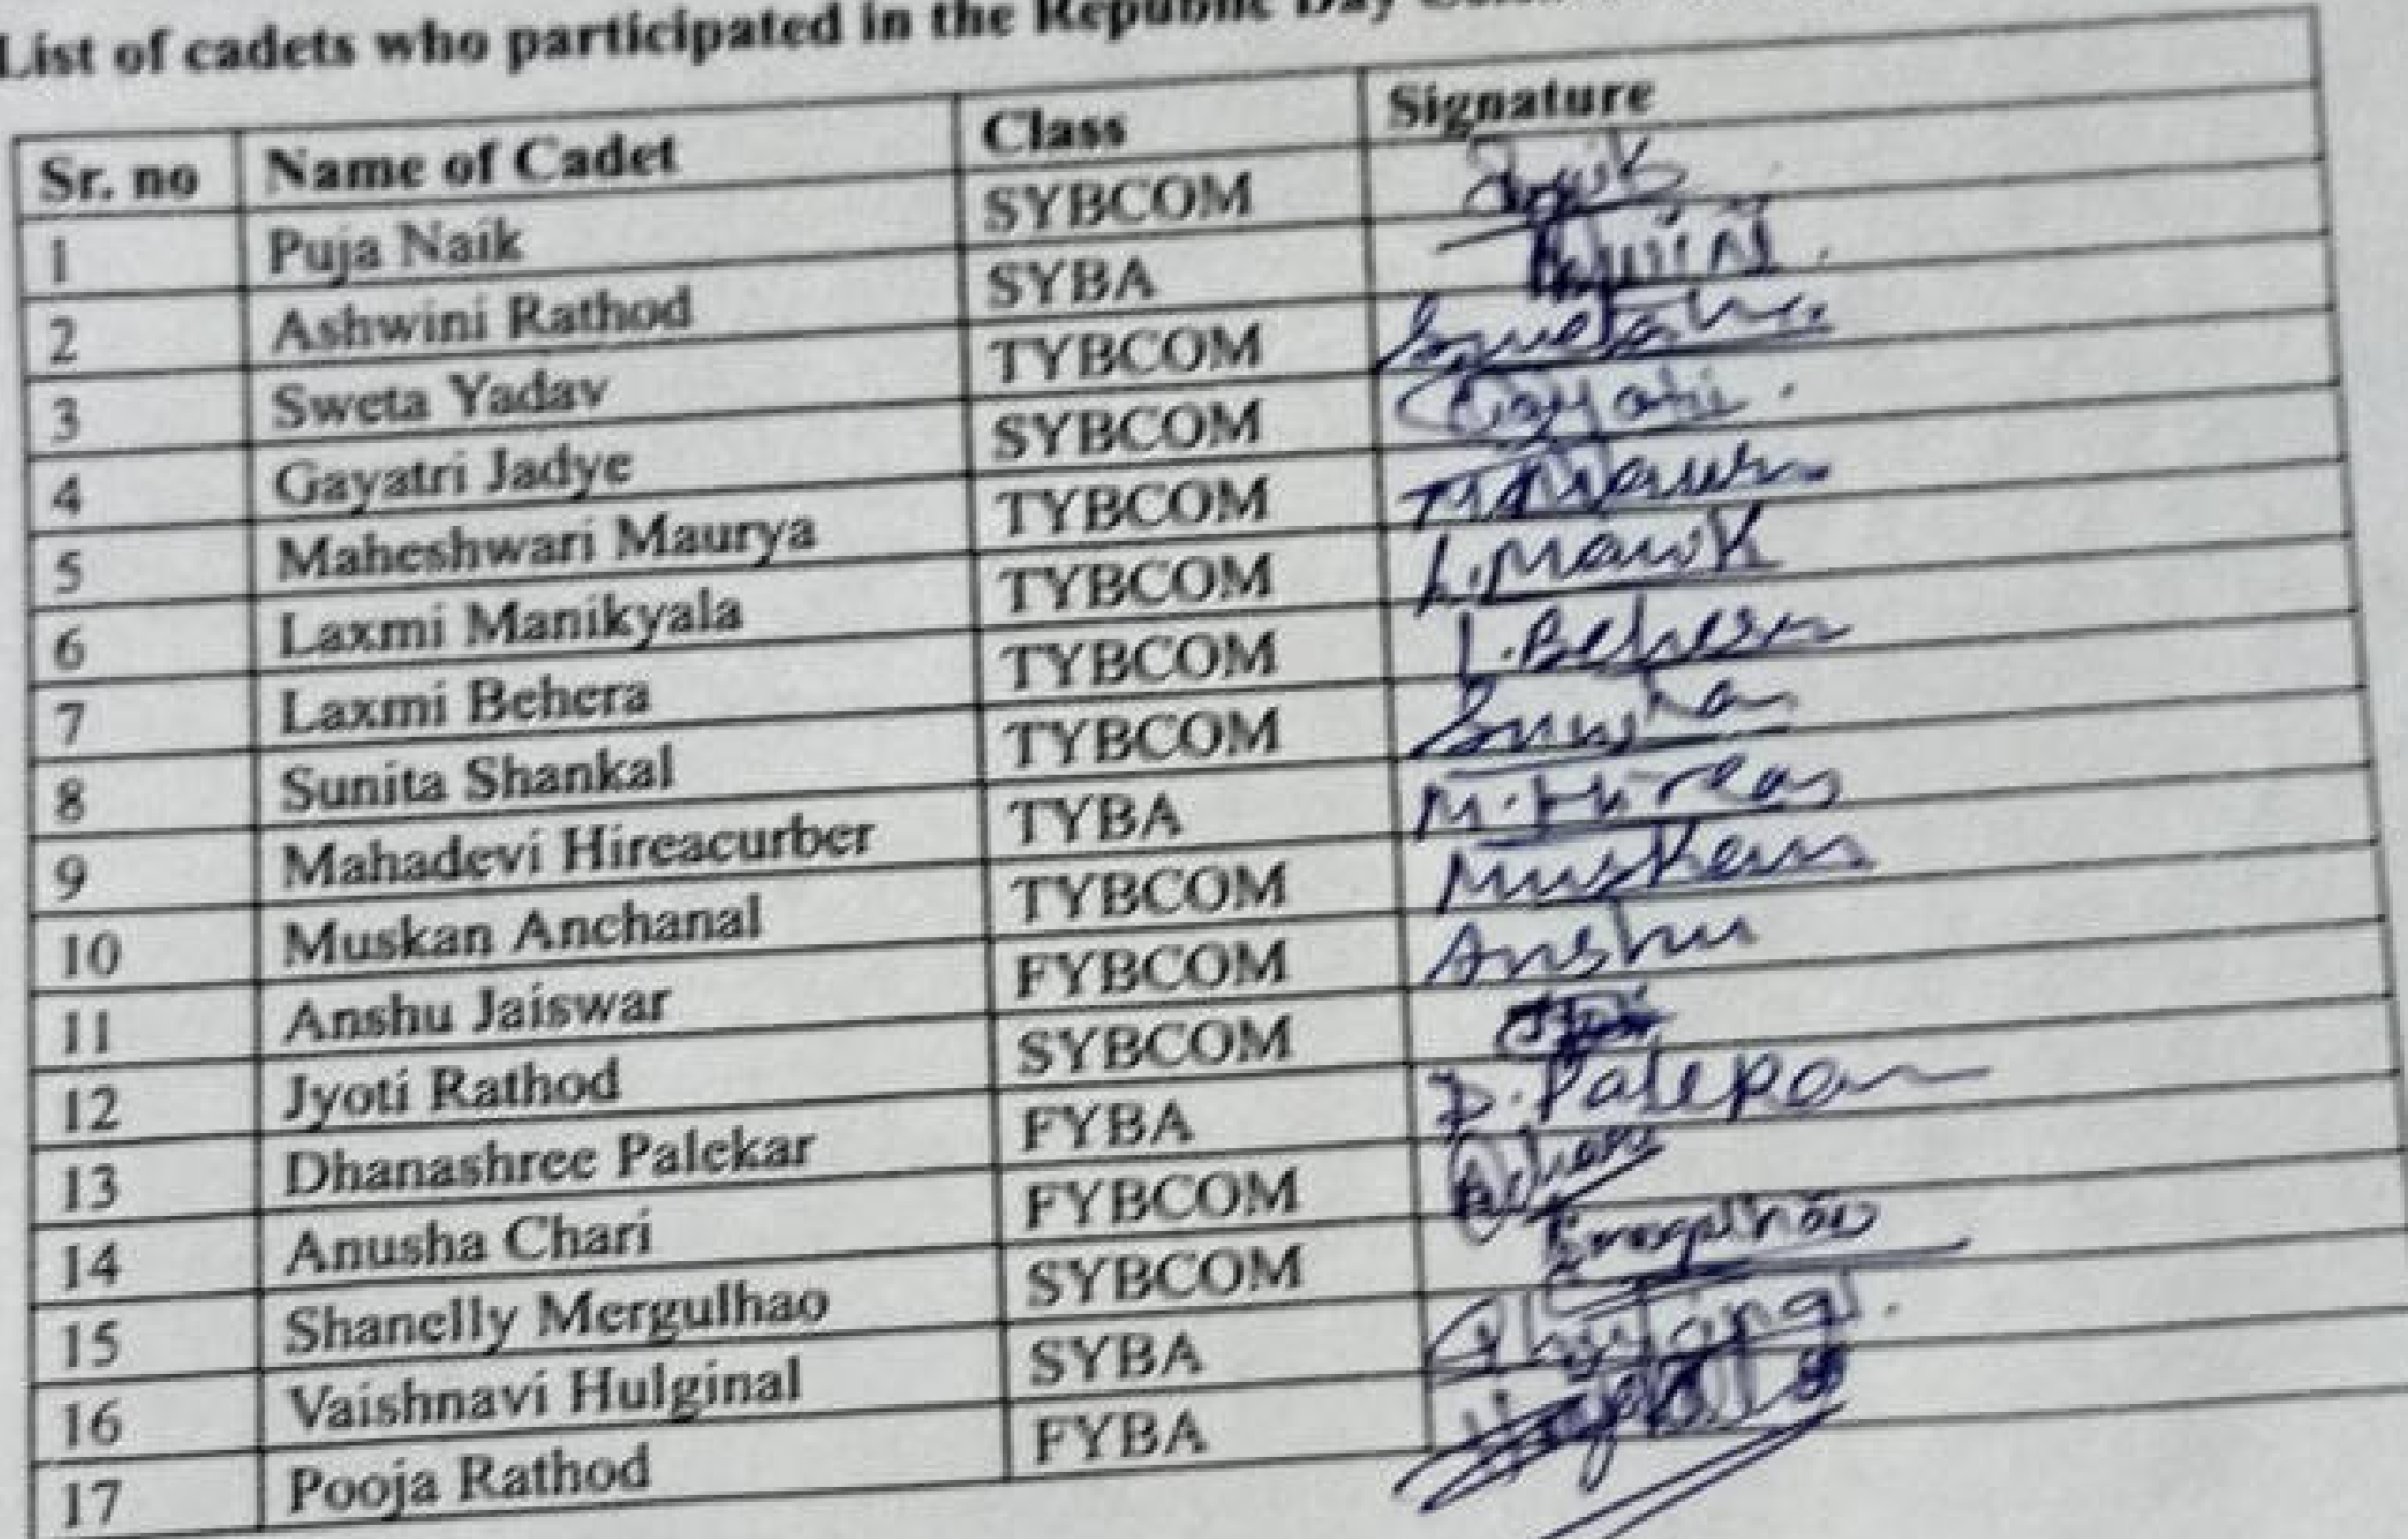 List of cadets who participated in the Republic Day
Sr. no Name of Cadet Class Signature
1 Puja Naik SYBCOM
2 Ashwini Rathod SYBA
3 Sweta Yadav TYBCOM
4 Gayatri Jadye SYBCOM Gayatri.
5 Maheshwari Maurya TYBCOM
6 Laxmi Manikyala TYBCOM
7 Laxmi Behera TYBCOM L.Behera
8 Sunita Shankal TYBCOM
9 Mahadevi Hireacurber TYBA
10 Muskan Anchanal TYBCOM Muskan
11 Anshu Jaiswar FYBCOM Anshu
12 Jyoti Rathod SYBCOM
13 Dhanashree Palekar FYBA
14 Anusha Chari FYBCOM
15 Shanelly Mergulhao SYBCOM
16 Vaishnavi Hulginal SYBA
17 Pooja Rathod FYBA